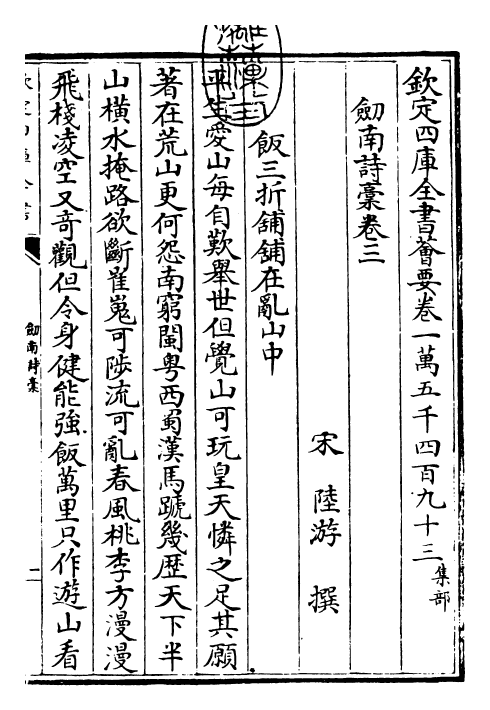 欽定四庫全書薈要卷一萬五千四百九十三集部
劒南詩稾卷三
宋陸游撰
飯三折舖舖在亂山中
平生愛山每自歎舉世但覺山可玩皇天憐之足其願
著在荒山更何怨南窮閩粤西蜀漢馬蹏幾歴天下半
山横水掩路欲斷崔嵬可陟流可亂春風桃李方漫漫
飛棧凌空又奇觀但令身健能強飯萬里只作遊山看
劒南詩稾